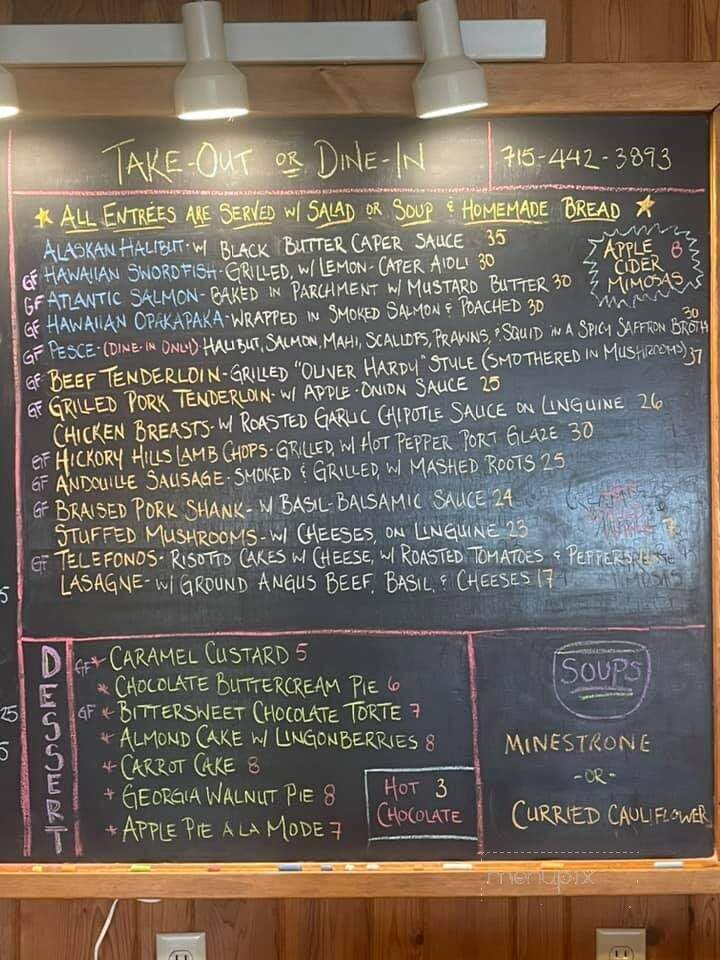 TAKE-OUT OR DINE-IN
715-442-3893
ALL ENTRÉES ARE SERVED W/ SALAD OR SOUP & HOMEMADE BREAD
ALASKAN HALIBUT- W/ BLACK BUTTER CAPER SAUCE 35
GF HAWAIIAN SWORDFISH- GRILLED, W/ LEMON-CAPER AIOLI 30
GF ATLANTIC SALMON- BAKED IN PARCHMENT W/ MUSTARD BUTTER 30
GF HAWAIIAN OPAKAPAKA- WRAPPED IN SMOKED SALMON & POACHED 30
GF PESCE- (DINE-IN ONLY) HALIBUT, SALMON, MAHI, SCALLOPS, PRAWNS, & SQUID IN A SPICY SAFFRON BROTH 30
GF BEEF TENDERLOIN- GRILLED "OLIVER HARDY" STYLE (SMOTHERED IN MUSHROOMS) 37
GF GRILLED PORK TENDERLOIN- W/ APPLE-ONION SAUCE 25
CHICKEN BREASTS- W/ ROASTED GARLIC CHIPOTLE SAUCE ON LINGUINE 26
GF HICKORY HILLS LAMB CHOPS- GRILLED, W/ HOT PEPPER PORT GLAZE 30
GF ANDOUILLE SAUSAGE- SMOKED & GRILLED W/ MASHED ROOTS 25
GF BRAISED PORK SHANK- W/ BASIL-BALSAMIC SAUCE 24
STUFFED MUSHROOMS- W/ CHEESES, ON LINGUINE 23
GF TELEFONOS- RISOTTO CAKES W/ CHEESE, W/ ROASTED TOMATOES & PEPPERS
LASAGNE- W/ GROUND ANGUS BEEF, BASIL, & CHEESES 17
APPLE 8
CIDER
MIMOSAS
DESSERT
GF * CARAMEL CUSTARD 5
* CHOCOLATE BUTTERCREAM PIE 6
GF * BITTERSWEET CHOCOLATE TORTE 7
* ALMOND CAKE W/ LINGONBERRIES 8
* CARROT CAKE 8
* GEORGIA WALNUT PIE 8
* APPLE PIE A LA MODE 7
HOT 3
CHOCOLATE
SOUPS
MINESTRONE
-OR-
CURRIED CAULIFLOWER
25
5
5
menupix